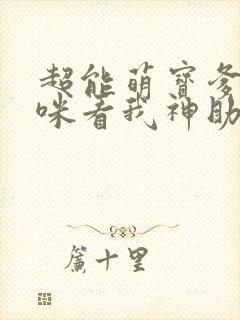 超能萌寶爹
咪看我神助
簾十里